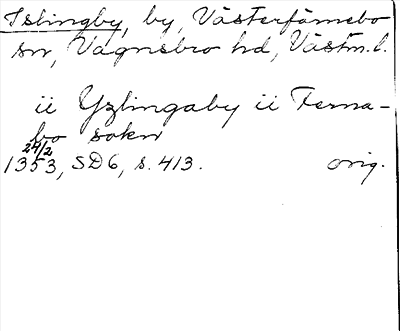 Islingby, by, Västerfärnebo
sn, Vagnsbro hd, Västm. l.
ii Yzlingaby ii Ferna-
bo sokn
24/2
1353, SD6, s. 413. orig.